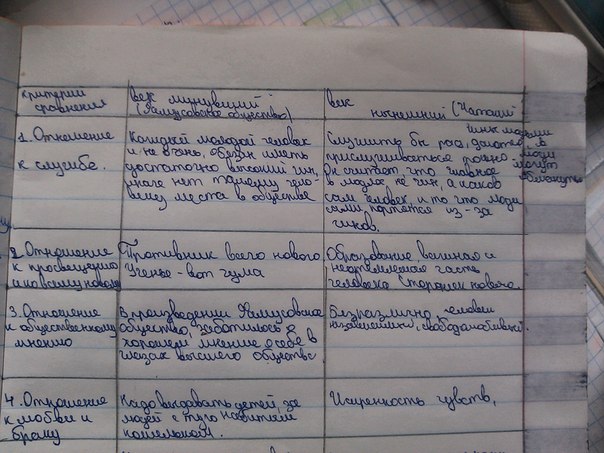 критерий сравнения
век минувший (Фамусовское общество)
век нынешний (Чатский
1. Отношение к службе.
Каждый молодой человек
и не очень, обязан иметь
достаточно высокий чин,
иначе нет такому чело-
веку места в обществе
Служить бы рад,
прислуживаться тошно
Он считает, что главное
в людях не чин, а каков
сам человек, и то что люди
сами портятся из-за
чинов.
чины людьми
даются а
люди
могут
обмануться
2. Отношение
к просвещению
и новому
Противник всего нового
Ученье - вот чума
Образование, великая и
неотъемлемая часть
человека сторонник нового.
3. Отношение
к общественному
мнению
В произведении Фамусовское
общество, заботилось о
хорошем мнение о себе в
глазах высшего общества.
Безразлично, человек
независимый, свободолюбивый.
4. Отношение
к любви и
браку
Надо выдавать детей, за
людей с туго набитым
кошельком.
Искренность чувств,